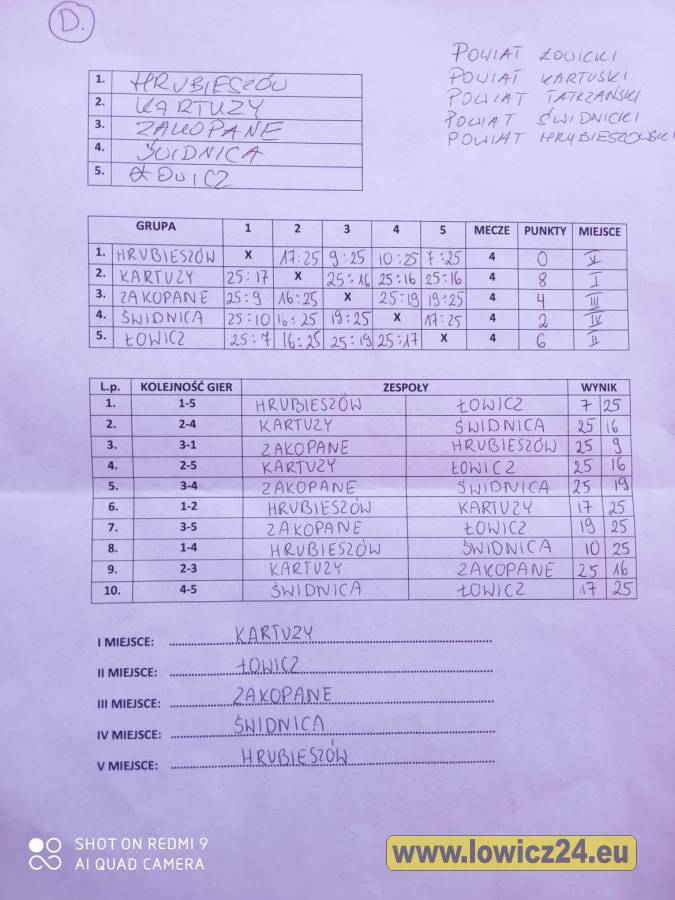 D.
POWIAT ŁOWICKI
POWIAT KARTUSKI
POWIAT TATRZAŃSKI
POWIAT ŚWIDNICKI
POWIAT HRUBIESZOWSKI
1. HRUBIESZÓW
2. KARTUZY
3. ZAKOPANE
4. ŚWIDNICA
5. ŁOWICZ
GRUPA 1 2 3 4 5 MECZE PUNKTY MIEJSCE
1. HRUBIESZÓW X 17:25 9:25 10:25 7:25 4 0 V
2. KARTUZY 25:17 X 25:16 25:16 25:16 4 8 I
3. ZAKOPANE 25:9 16:25 X 25:19 19:25 4 4 III
4. ŚWIDNICA 25:10 16:25 19:25 X 17:25 4 2 IV
5. ŁOWICZ 25:7 16:25 25:19 25:17 X 4 6 II
L.p. KOLEJNOŚĆ GIER ZESPOŁY WYNIK
1. 1-5 HRUBIESZÓW ŁOWICZ 7 25
2. 2-4 KARTUZY ŚWIDNICA 25 16
3. 3-1 ZAKOPANE HRUBIESZÓW 25 9
4. 2-5 KARTUZY ŁOWICZ 25 16
5. 3-4 ZAKOPANE ŚWIDNICA 25 19
6. 1-2 HRUBIESZÓW KARTUZY 17 25
7. 3-5 ZAKOPANE ŁOWICZ 19 25
8. 1-4 HRUBIESZÓW ŚWIDNICA 10 25
9. 2-3 KARTUZY ZAKOPANE 25 16
10. 4-5 ŚWIDNICA ŁOWICZ 17 25
I MIEJSCE: KARTUZY
II MIEJSCE: ŁOWICZ
III MIEJSCE: ZAKOPANE
IV MIEJSCE: ŚWIDNICA
V MIEJSCE: HRUBIESZÓW
SHOT ON REDMI 9
AI QUAD CAMERA
www.lowicz24.eu